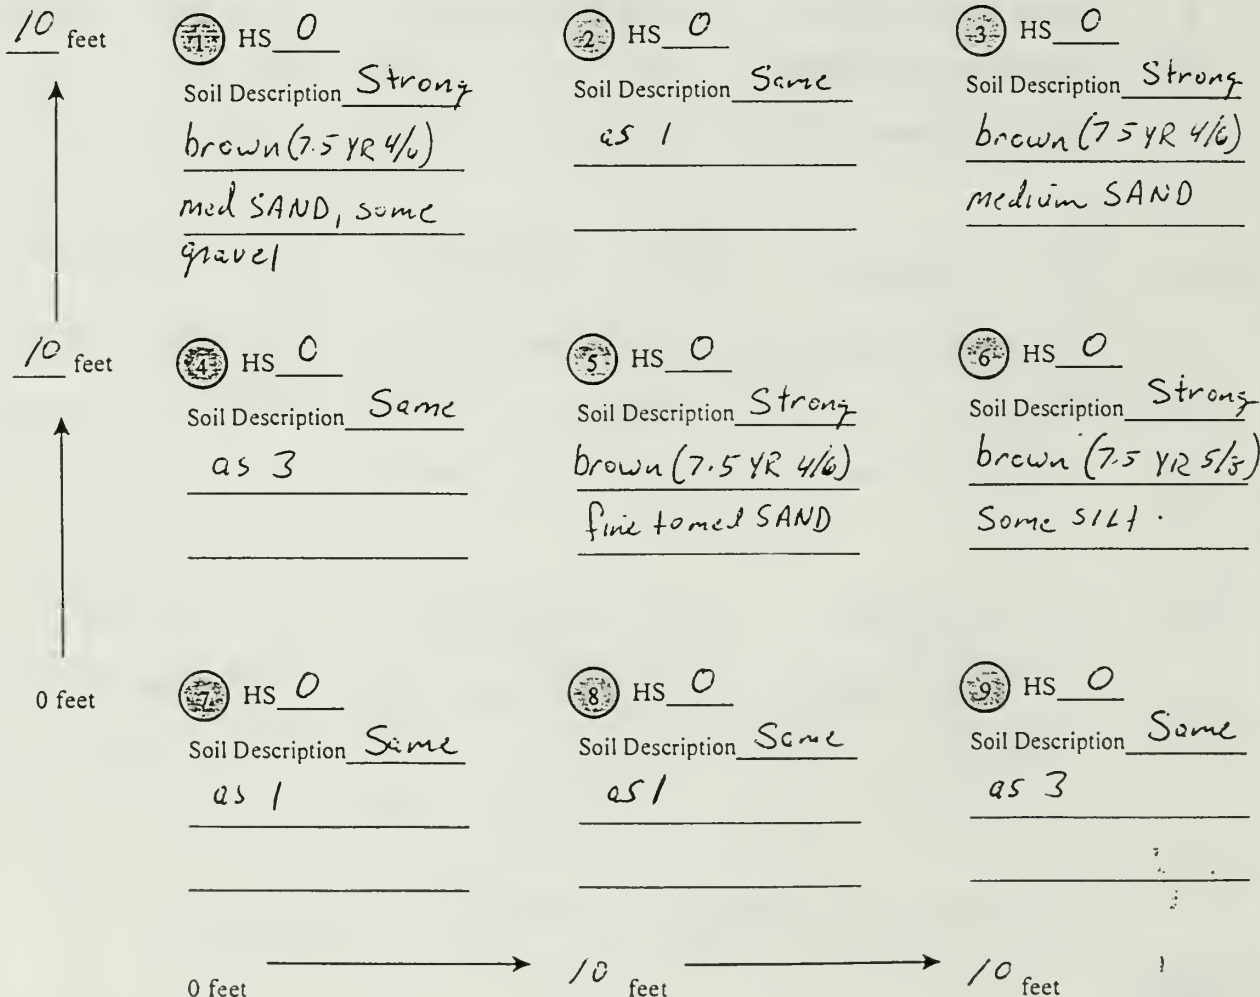 10 feet
1 HS 0
Soil Description Strong
brown (7.5 YR 4/6)
med SAND, some
gravel
2 HS 0
Soil Description Same
as 1
3 HS 0
Soil Description Strong
brown (7.5 YR 4/6)
medium SAND
10 feet
4 HS 0
Soil Description Same
as 3
5 HS 0
Soil Description Strong
brown (7.5 YR 4/6)
fine to med SAND
6 HS 0
Soil Description Strong
brown (7.5 YR
Some SILT.
0 feet
7 HS 0
Soil Description Same
as 1
8 HS 0
Soil Description Same
as 1
9 HS 0
Soil Description Same
as 3
0 feet
10 feet
10 feet